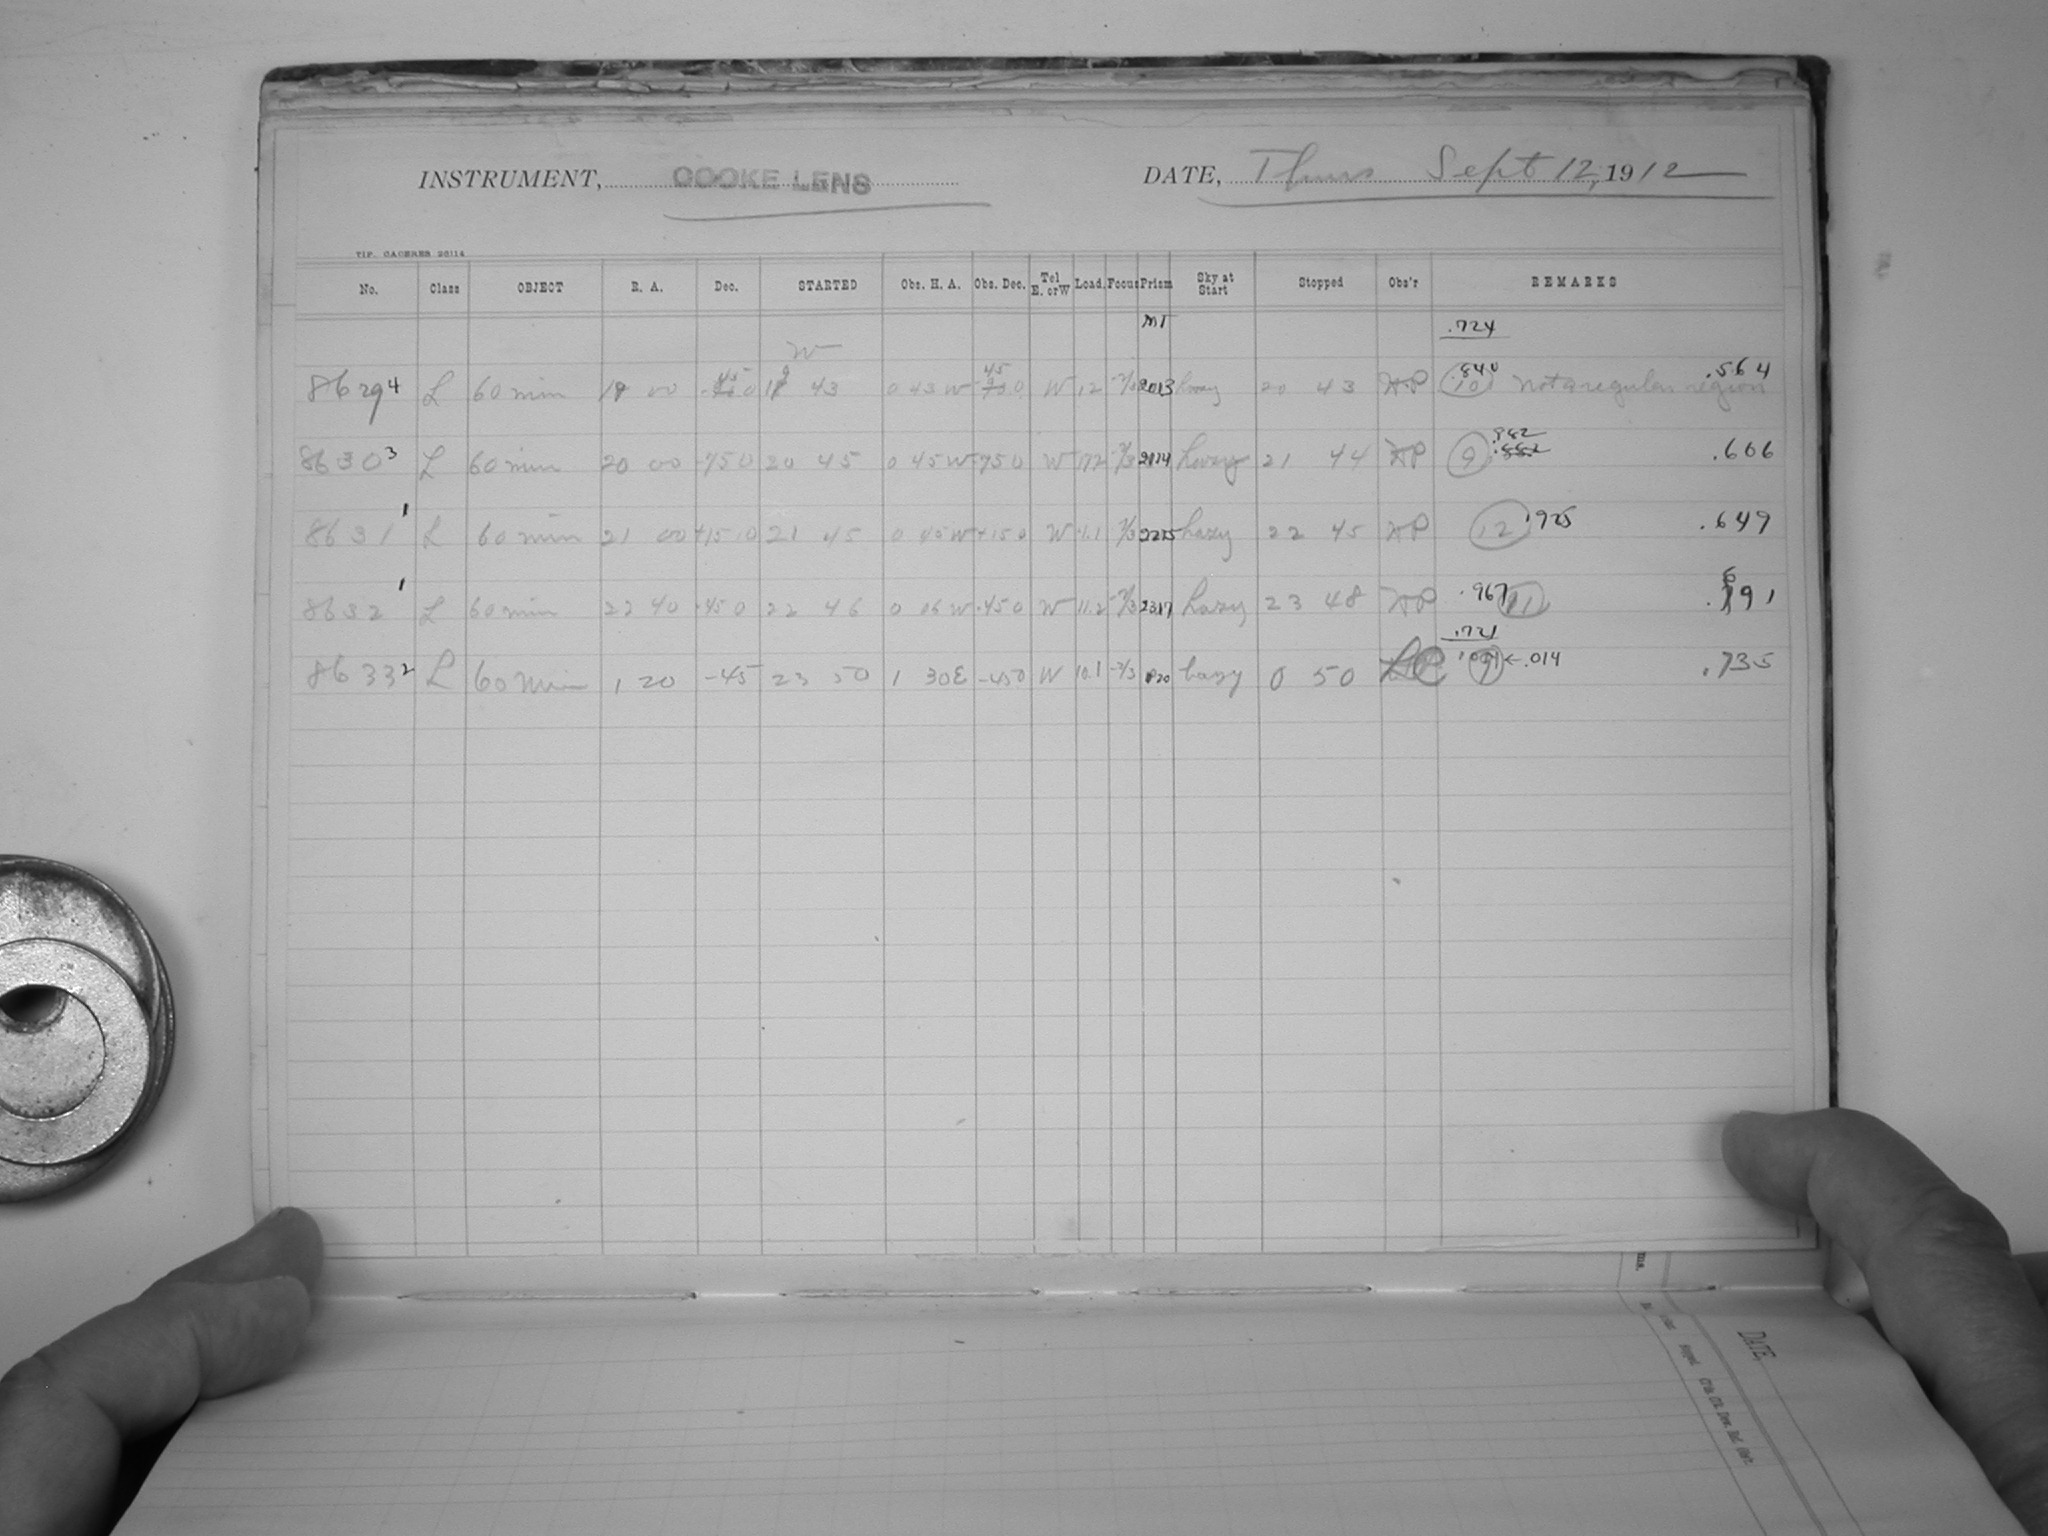 INSTRUMENT, COOKE LENS DATE, Thurs Sept 12, 1912
TIP. CACERES 26114
No. Class OBJECT R. A. Dec. STARTED Obs. H. A. Obs. Dec. Tel E. or W Load. Focus Prism Sky at Start Stopped Obs'r REMARKS
MT .724
W
8629 4 L 60 min 19 00 -45 0 19 43 0 43 W 45 W 12 2013 hazy 20 43 .840 10 not a regular region .564
8630 3 L 60 min 20 00 -75 0 20 45 0 45 W -75 0 W 2114 hazy 21 44 9 .982 .606
8631 1 L 60 min 21 00 +15 0 21 45 0 45 W +15 0 W 2215 hazy 22 45 12 .925 .649
8632 1 L 60 min 22 40 -45 0 22 46 0 06 W -45 0 W 11.2 2317 hazy 23 48 .967 11 .691
.721
8633 2 L 60 min 1 20 -45 23 50 1 30 E -45 0 W 10.1 hazy 0 50 ← .014 .735
DATE,